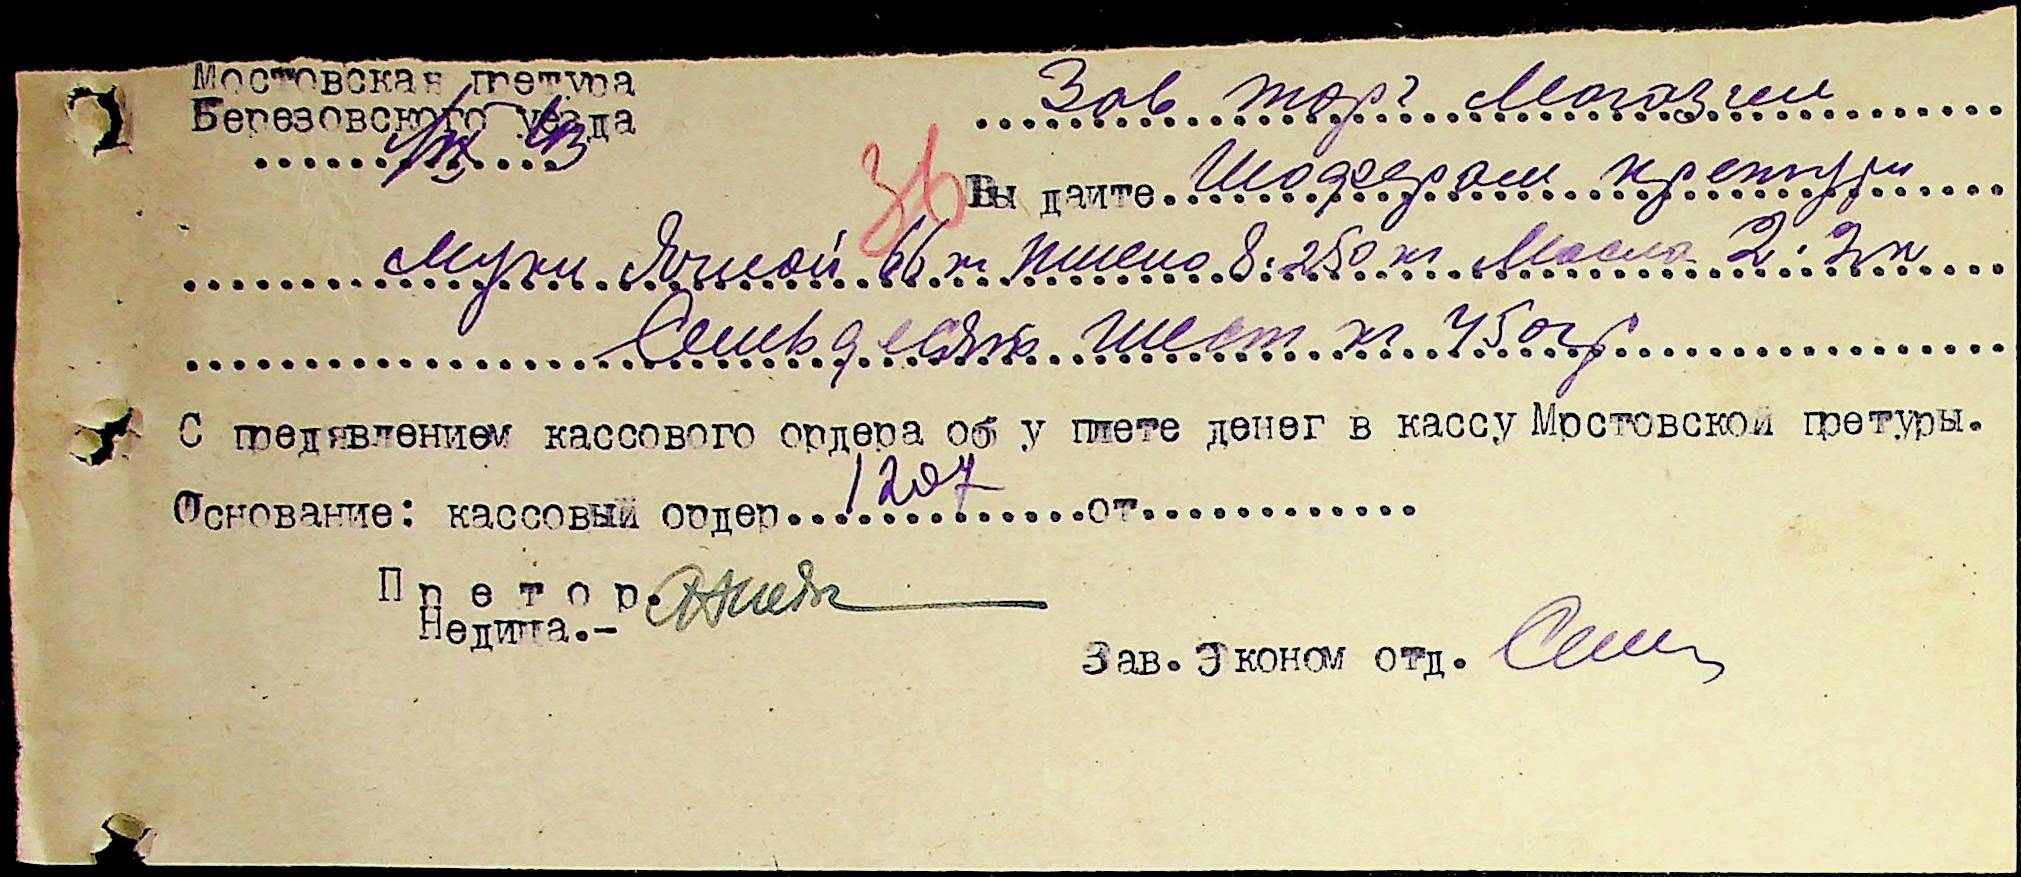 Мостовская претура
Березовского уезда
Зав торг Магазин
1/IX 43
36
Вы даите Шоферам претури
Муки Ячной 66 кг Пшено 8.250 кг Масла 2.2 к
Семьдесят шест кг 450 гр
С предявлением кассового ордера об у плете денег в кассу Мостовской претуры.
Основание: кассовый ордер 1207 от
П р е т о р.
Недица.-
Зав. Эконом отд.